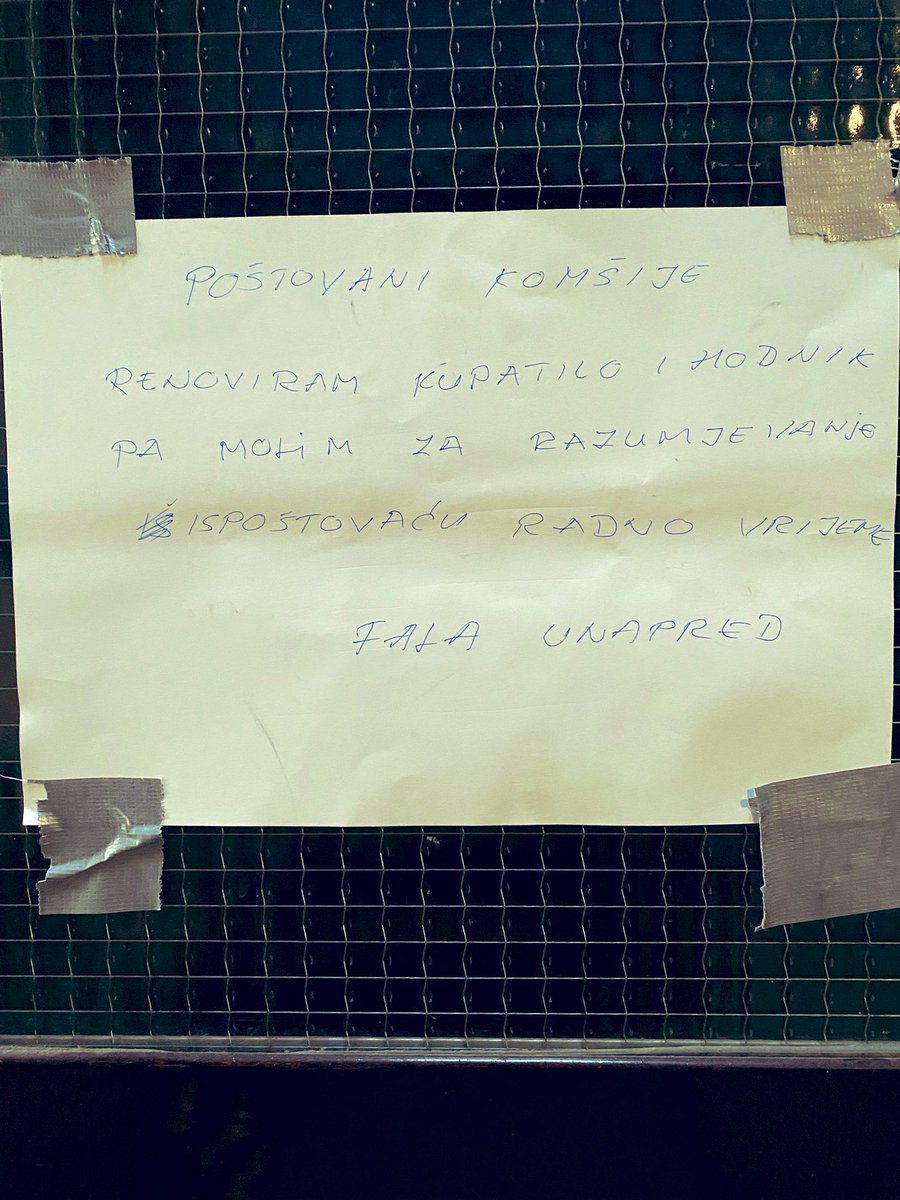 POŠTOVANI KOMŠIJE
RENOVIRAM KUPATILO I HODNIK
PA MOLIM ZA RAZUMJEVANJE
ISPOŠTOVAĆU RADNO VRIJEME
FALA UNAPRED